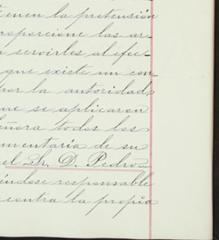 tienen la pretensión
roporcione las ar
a servirles al efec-
que existe un con
por la autoridad
que se aplicaron
eñora todos los
mentaria de su
el Sr. D. Pedro
éndose responsable
contra la propia